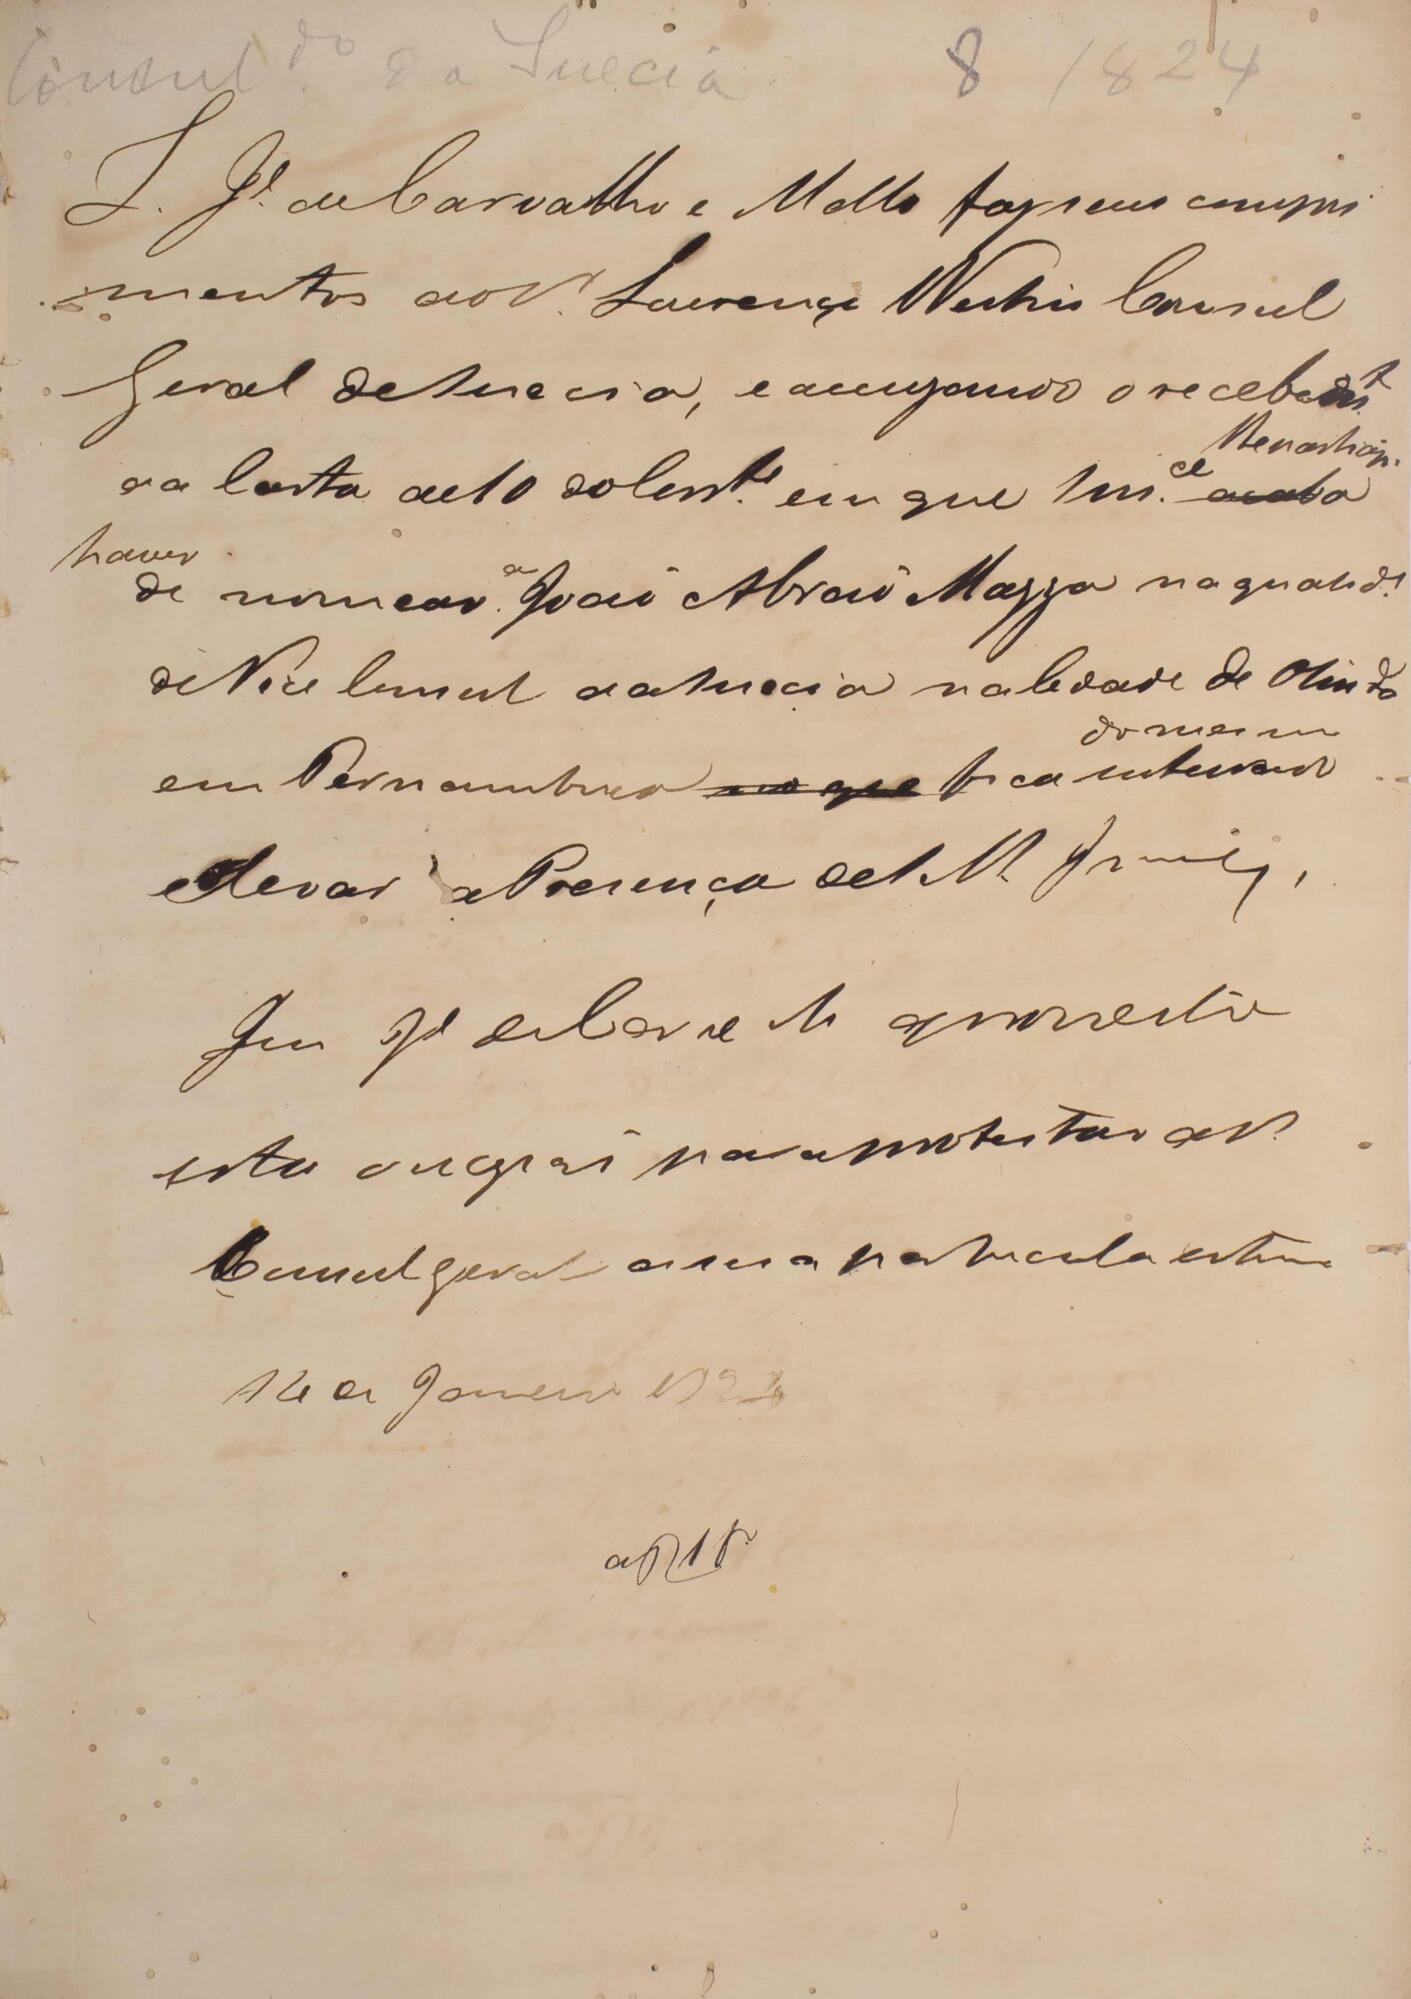 Consul.do da Suecia 8 1824
L. Jé. de Carvalho e Mello faz seus cumpri
mentos ao Sr. Lourenço Westin Consul
Geral de Suecia, e accuzando o recebim.to
da Carta de 10 do corr.te em que Vm.ce
haver
de nomear a João Abraão Mazza na qualid.e
de Vice Consul da Suecia na Cidade de Olinda
do mesmo
em Pernambuco no que fica inteirado
e levar a Presença de S. M. Imp.
Jé de Car e M aproveita
esta occasiaõ para protestar ao Sr.
Consul geral a sua particular estima
12 de Janeiro 1824